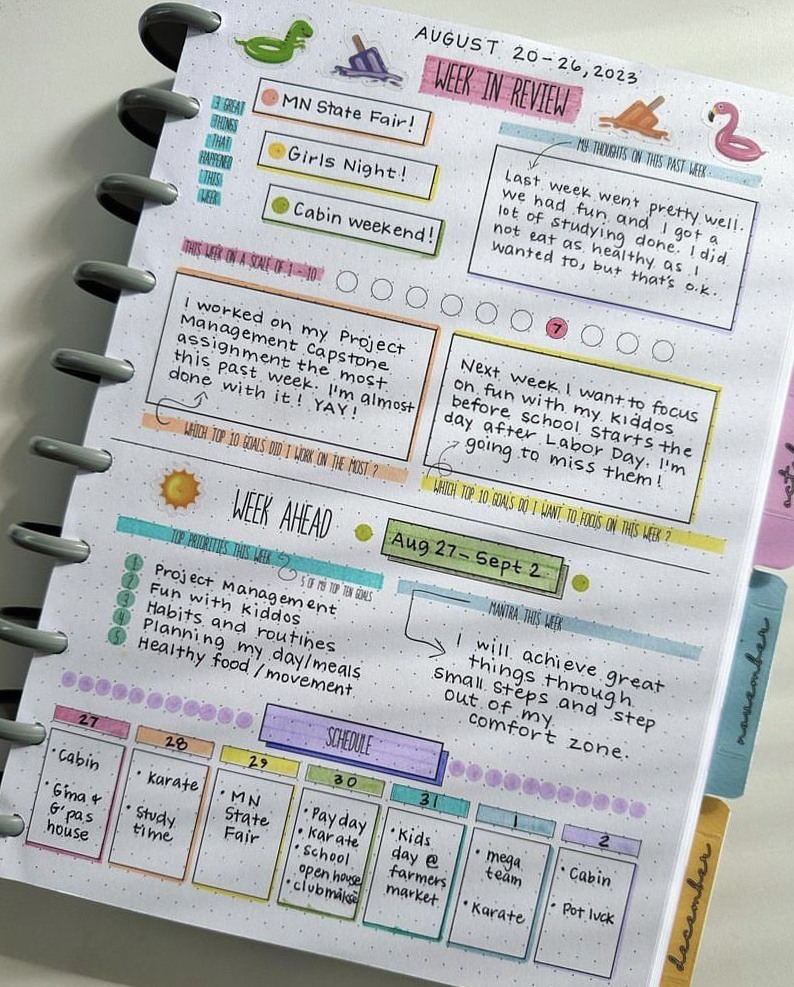 AUGUST 20-26, 2023
WEEK IN REVIEW
3 GREAT
THINGS
THAT
HAPPENED
THIS
WEEK
MN State Fair!
Girls Night!
Cabin weekend!
MY THOUGHTS ON THIS PAST WEEK
Last week went pretty well.
We had fun and I got a
lot of studying done. I did
not eat as healthy as I
wanted to, but that's o.k.
THIS WEEK ON A SCALE OF 1 - 10
7
I worked on my Project
Management Capstone
assignment the most
this past week. I'm almost
done with it! YAY!
WHICH TOP 10 GOALS DID I WORK ON THE MOST?
Next week I want to focus
on fun with my kiddos
before school starts the
day after Labor Day. I'm
going to miss them!
WHICH TOP 10 GOALS DO I WANT TO FOCUS ON THIS WEEK?
WEEK AHEAD
Aug 27- Sept 2
TOP PRIORITIES THIS WEEK
5 OF MY TOP TEN GOALS
1 Project Management
2 Fun with kiddos
3 Habits and routines
4 Planning my day/meals
5 Healthy food/movement
MANTRA THIS WEEK
I will achieve great
things through
small steps and step
out of my
comfort zone.
SCHEDULE
27
• Cabin
• Gma &
G'pas
house
28
• Karate
• Study
time
29
• MN
State
Fair
30
• Pay day
• Karate
• School
open house
31
• Kids
day @
farmers
market
1
• mega
team
• Karate
2
• Cabin
• Pot luck
november
december